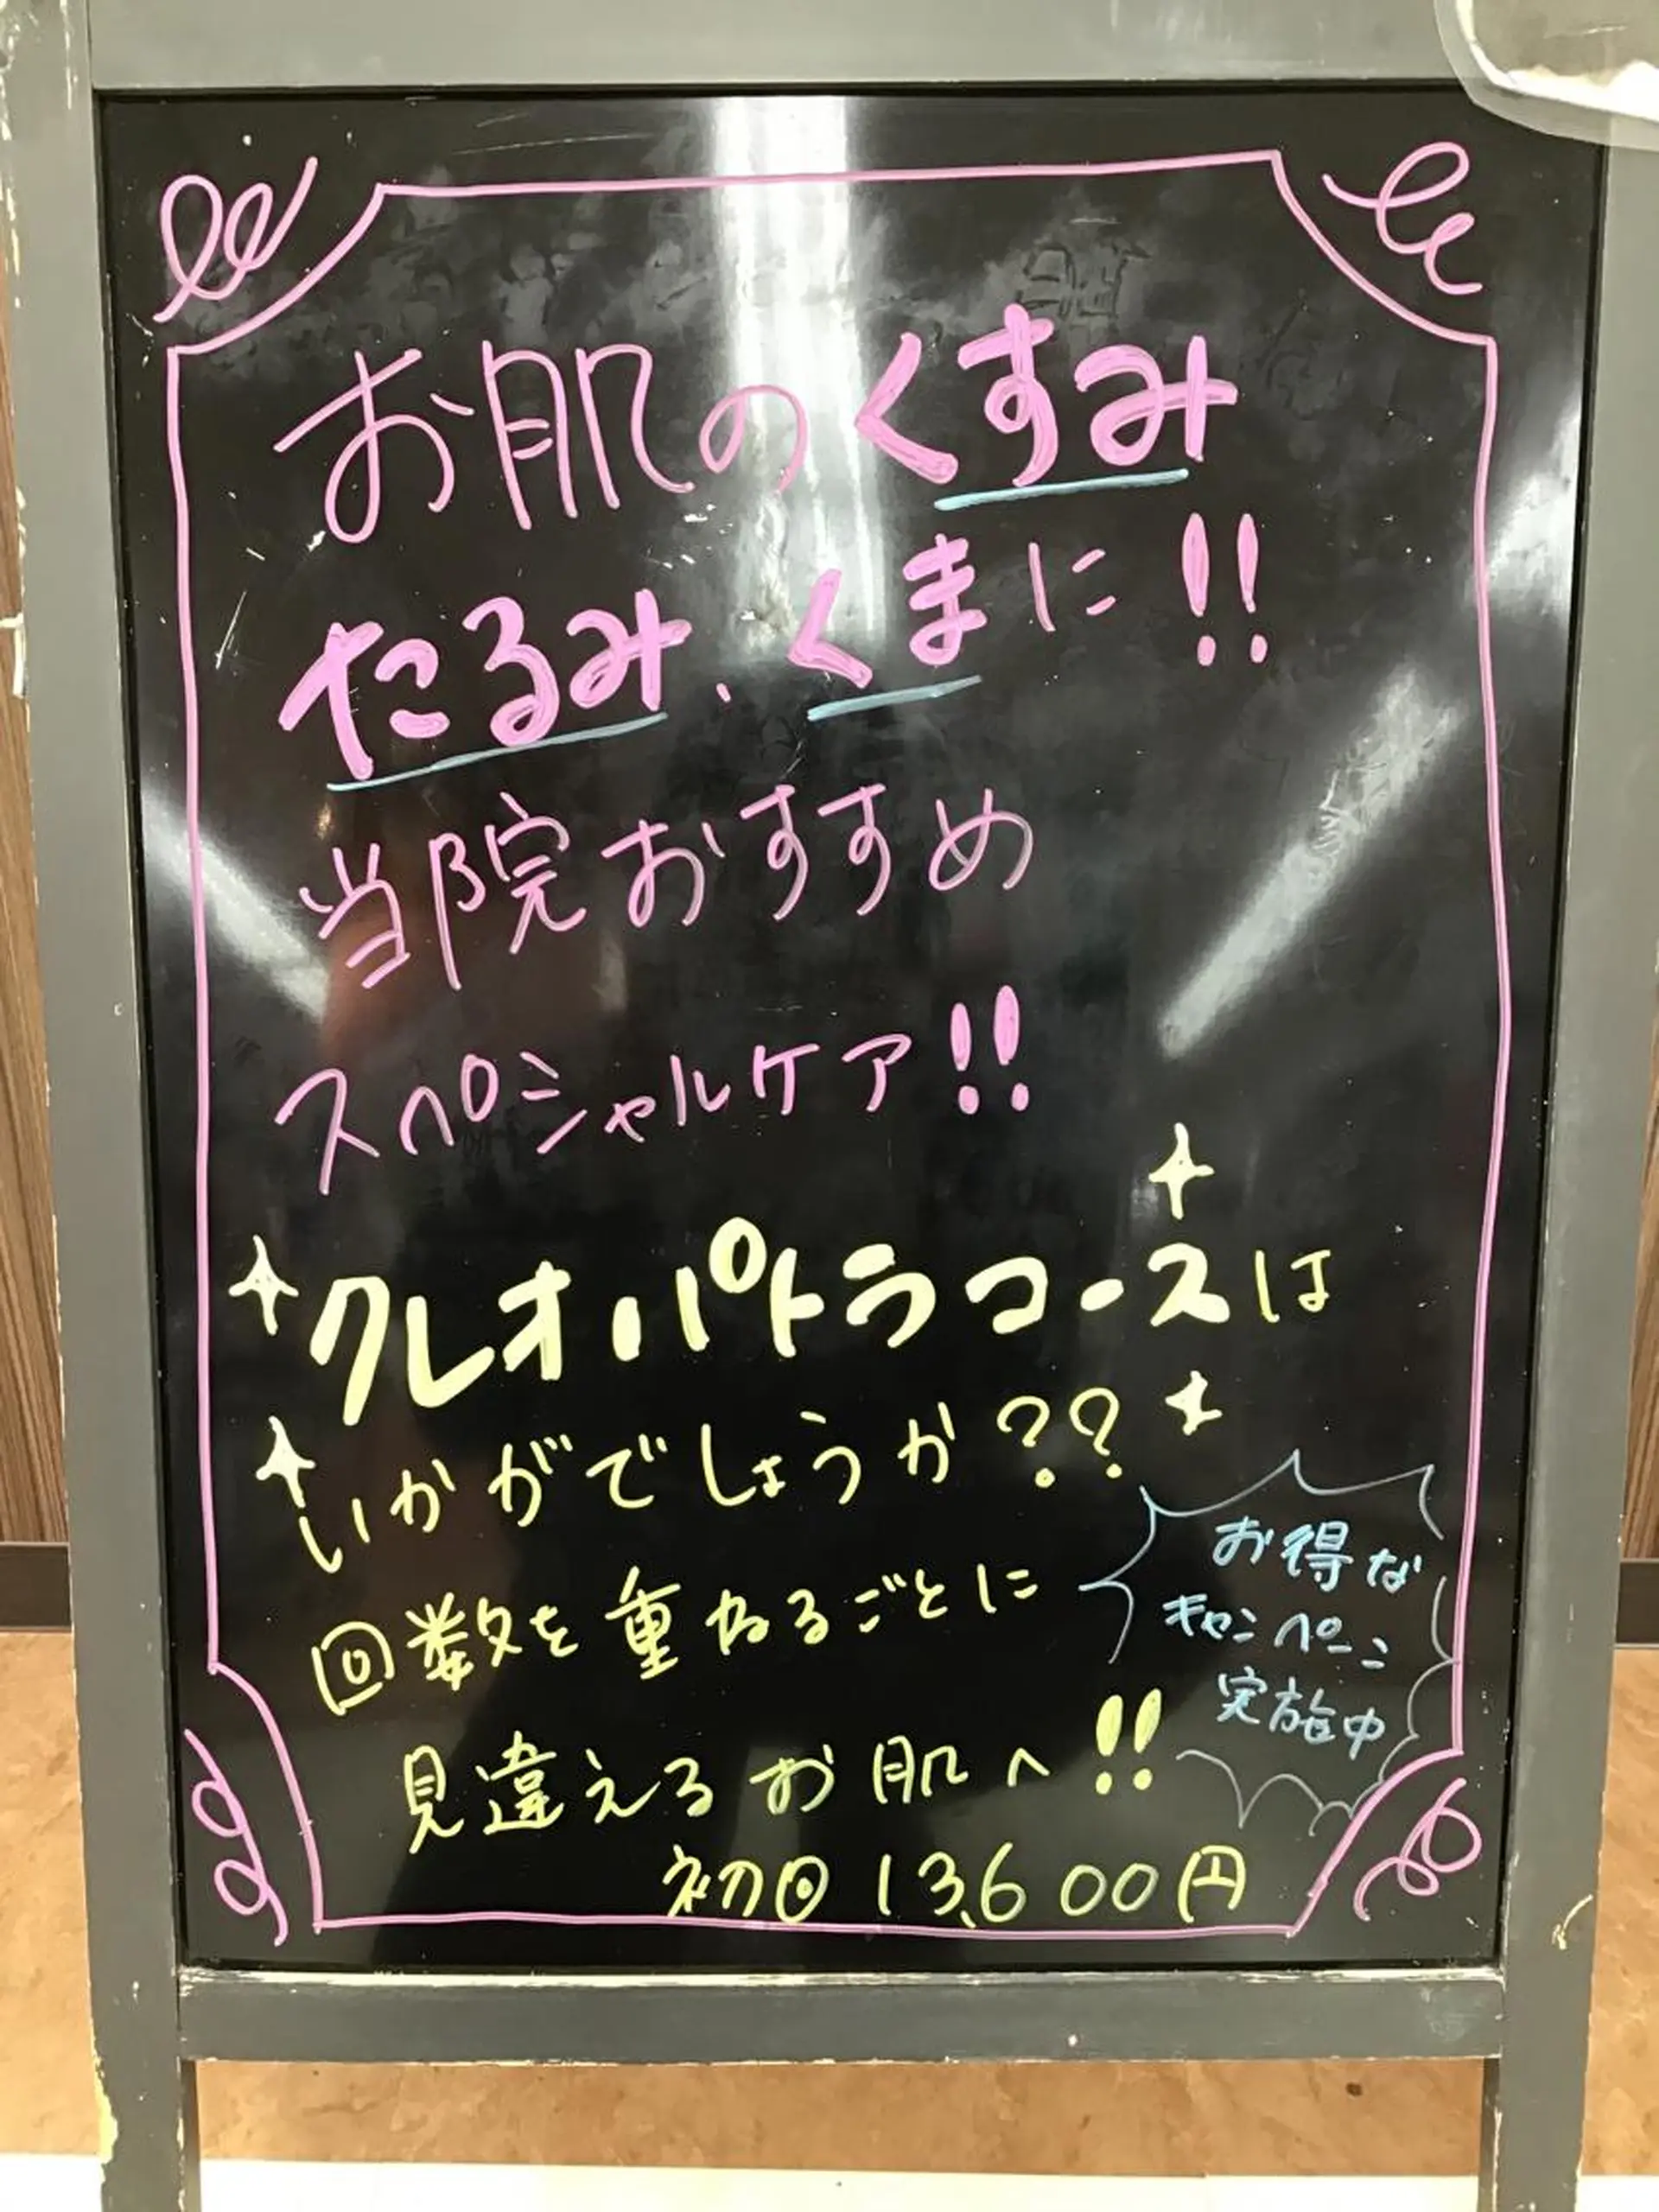 お肌のくすみ
たるみ、くまに!!
当院おすすめ
スペシャルケア!!
クレオパトラコースは
いかがでしょうか??
回数を重ねるごとに
見違えるお肌へ!!
初回 13,600円
お得な
キャンペーン
実施中